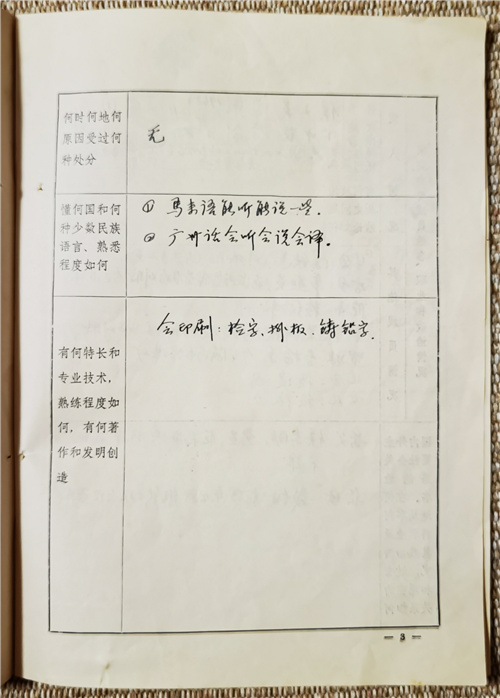 何时何地何
原因受过何
种处分
无
懂何国和何
种少数民族
语言、熟悉
程度如何
① 马来语能听能说一些.
② 广州话会听会说会译。
有何特长和
专业技术,
熟练程度如
何,有何著
作和发明创
造
会印刷:检字、排板、铸铅字.
— 3 —